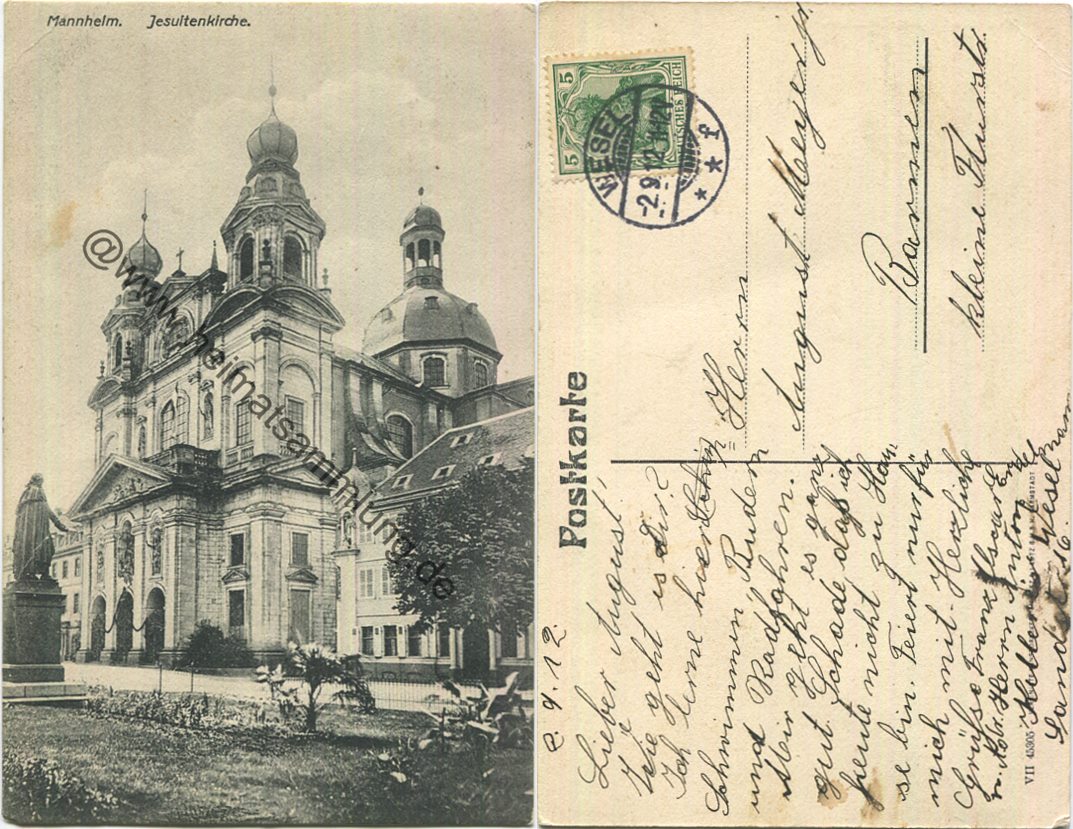 Mannheim. Jesuitenkirche.
@www.heimatsammlung.de
5 5
DEUTSCHES REICH
5
WESEL
-2.9.12. 11-12V
* * f
Postkarte
Herrn
August Meyer jr.
Barmen
kleine Flurstr.
2. 9. 12.
Lieber August!
Wie geht es Dir?
Ich lerne hier tüchtig
Schwimmen Rudern
und Radfahren.
Mir geht es ganz
gut. Schade daß ich
heute nicht zu Hau-
se bin. Feiert nur für
mich mit. Herzliche
Grüße Franz
Herrn Anton
Wesel
VII 45305